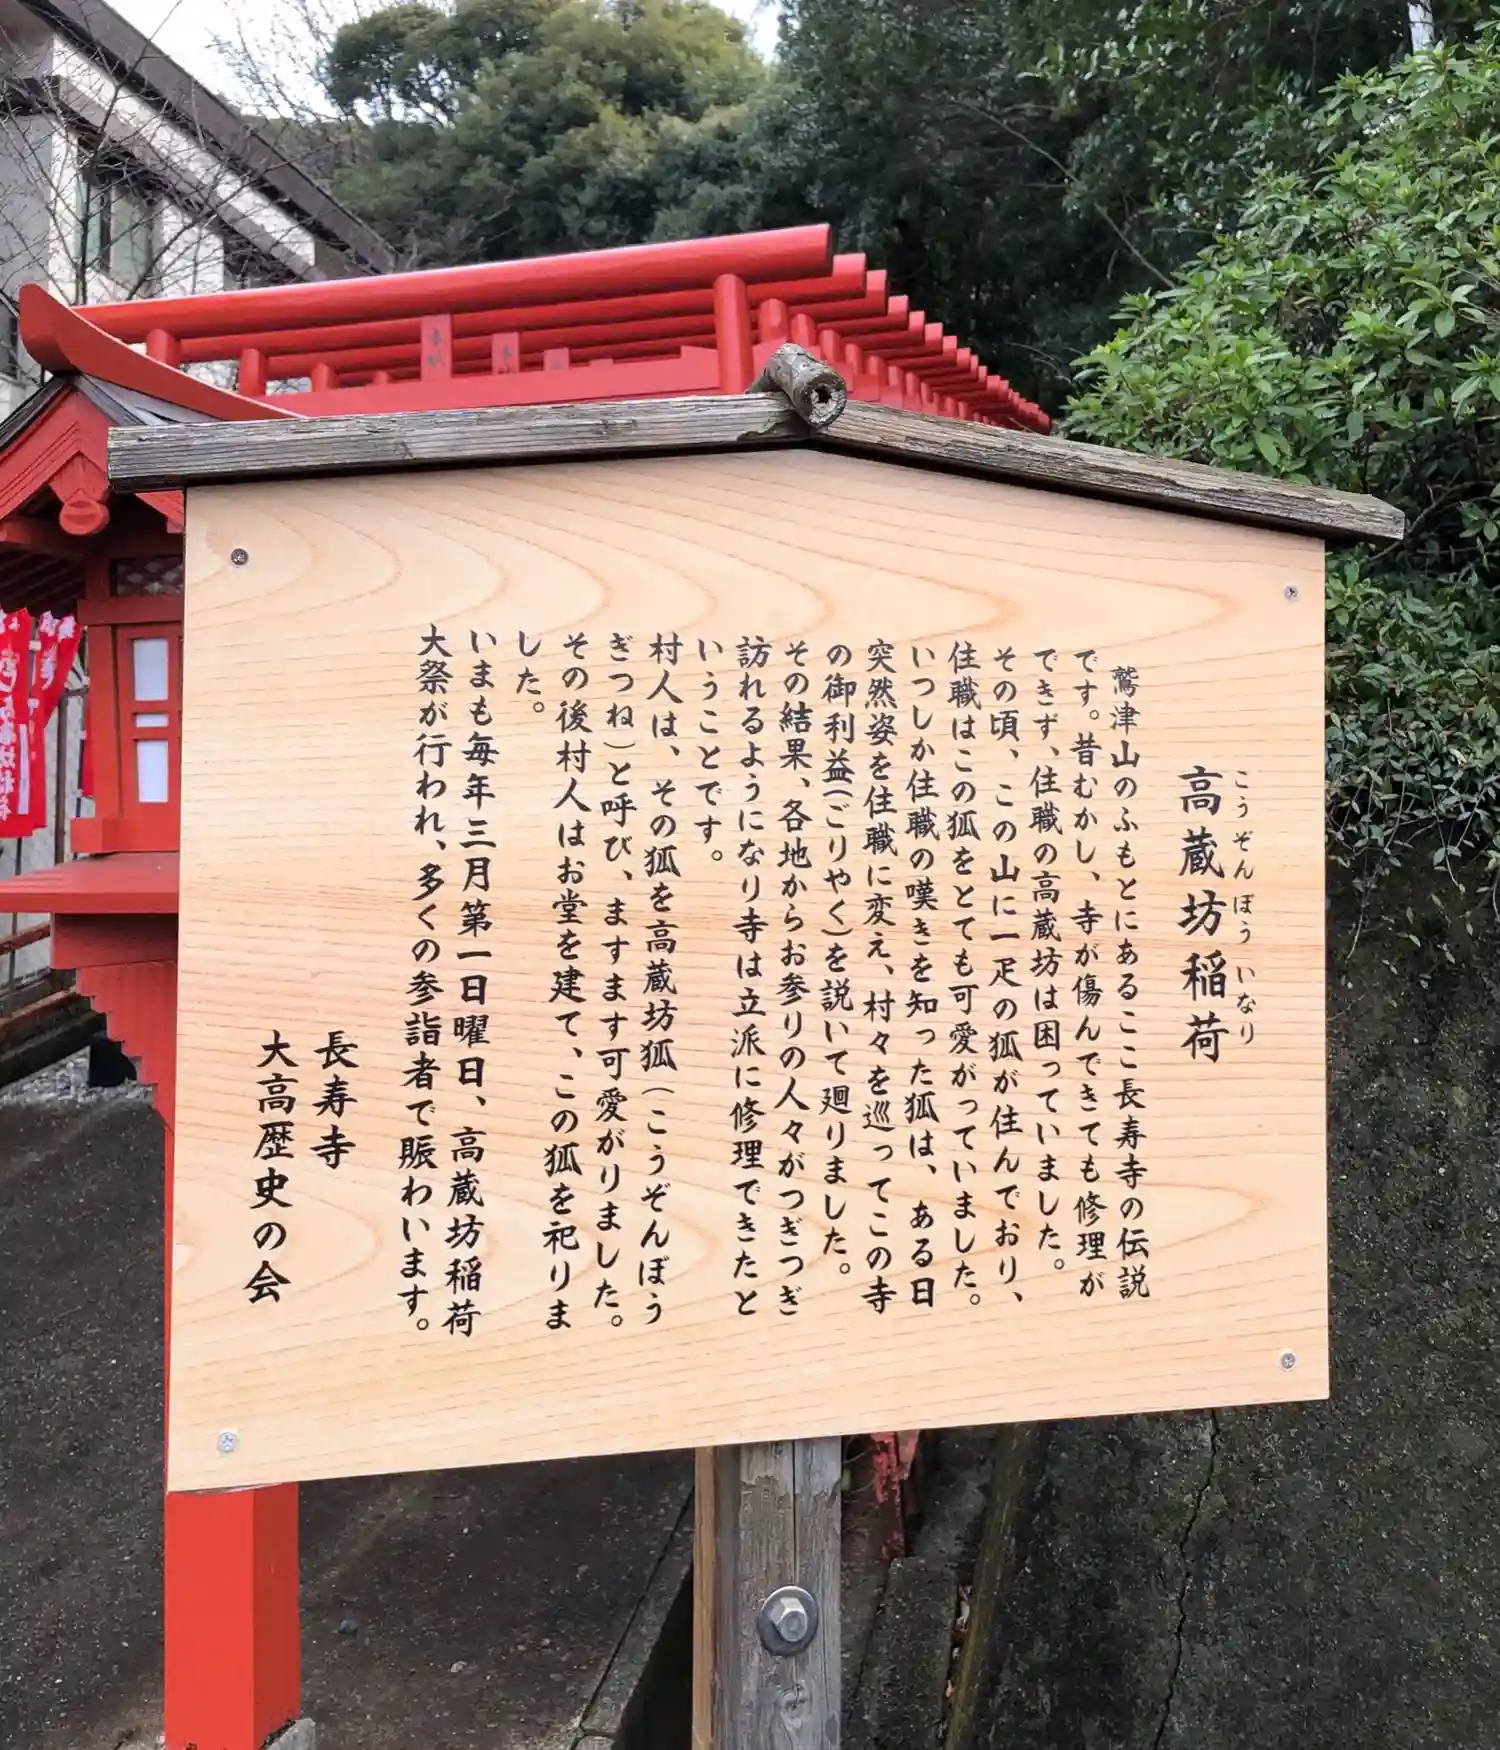 高蔵坊稲荷
こうぞんぼういなり
鷲津山のふもとにあるここ長寿寺の伝説
です。昔むかし、寺が傷んできても修理が
できず、住職の高蔵坊は困っていました。
その頃、この山に一疋の狐が住んでおり、
住職はこの狐をとても可愛がっていました。
いつしか住職の嘆きを知った狐は、ある日
突然姿を住職に変え、村々を巡ってこの寺
の御利益(ごりやく)を説いて廻りました。
その結果、各地からお参りの人々がつぎつぎ
訪れるようになり寺は立派に修理できたと
いうことです。
村人は、その狐を高蔵坊狐(こうぞんぼう
ぎつね)と呼び、ますます可愛がりました。
その後村人はお堂を建て、この狐を祀りま
した。
いまも毎年三月第一日曜日、高蔵坊稲荷
大祭が行われ、多くの参詣者で賑わいます。
長寿寺
大高歴史の会
奉納